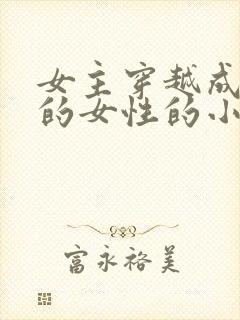 女主穿越成
的女性的小
富永裕美